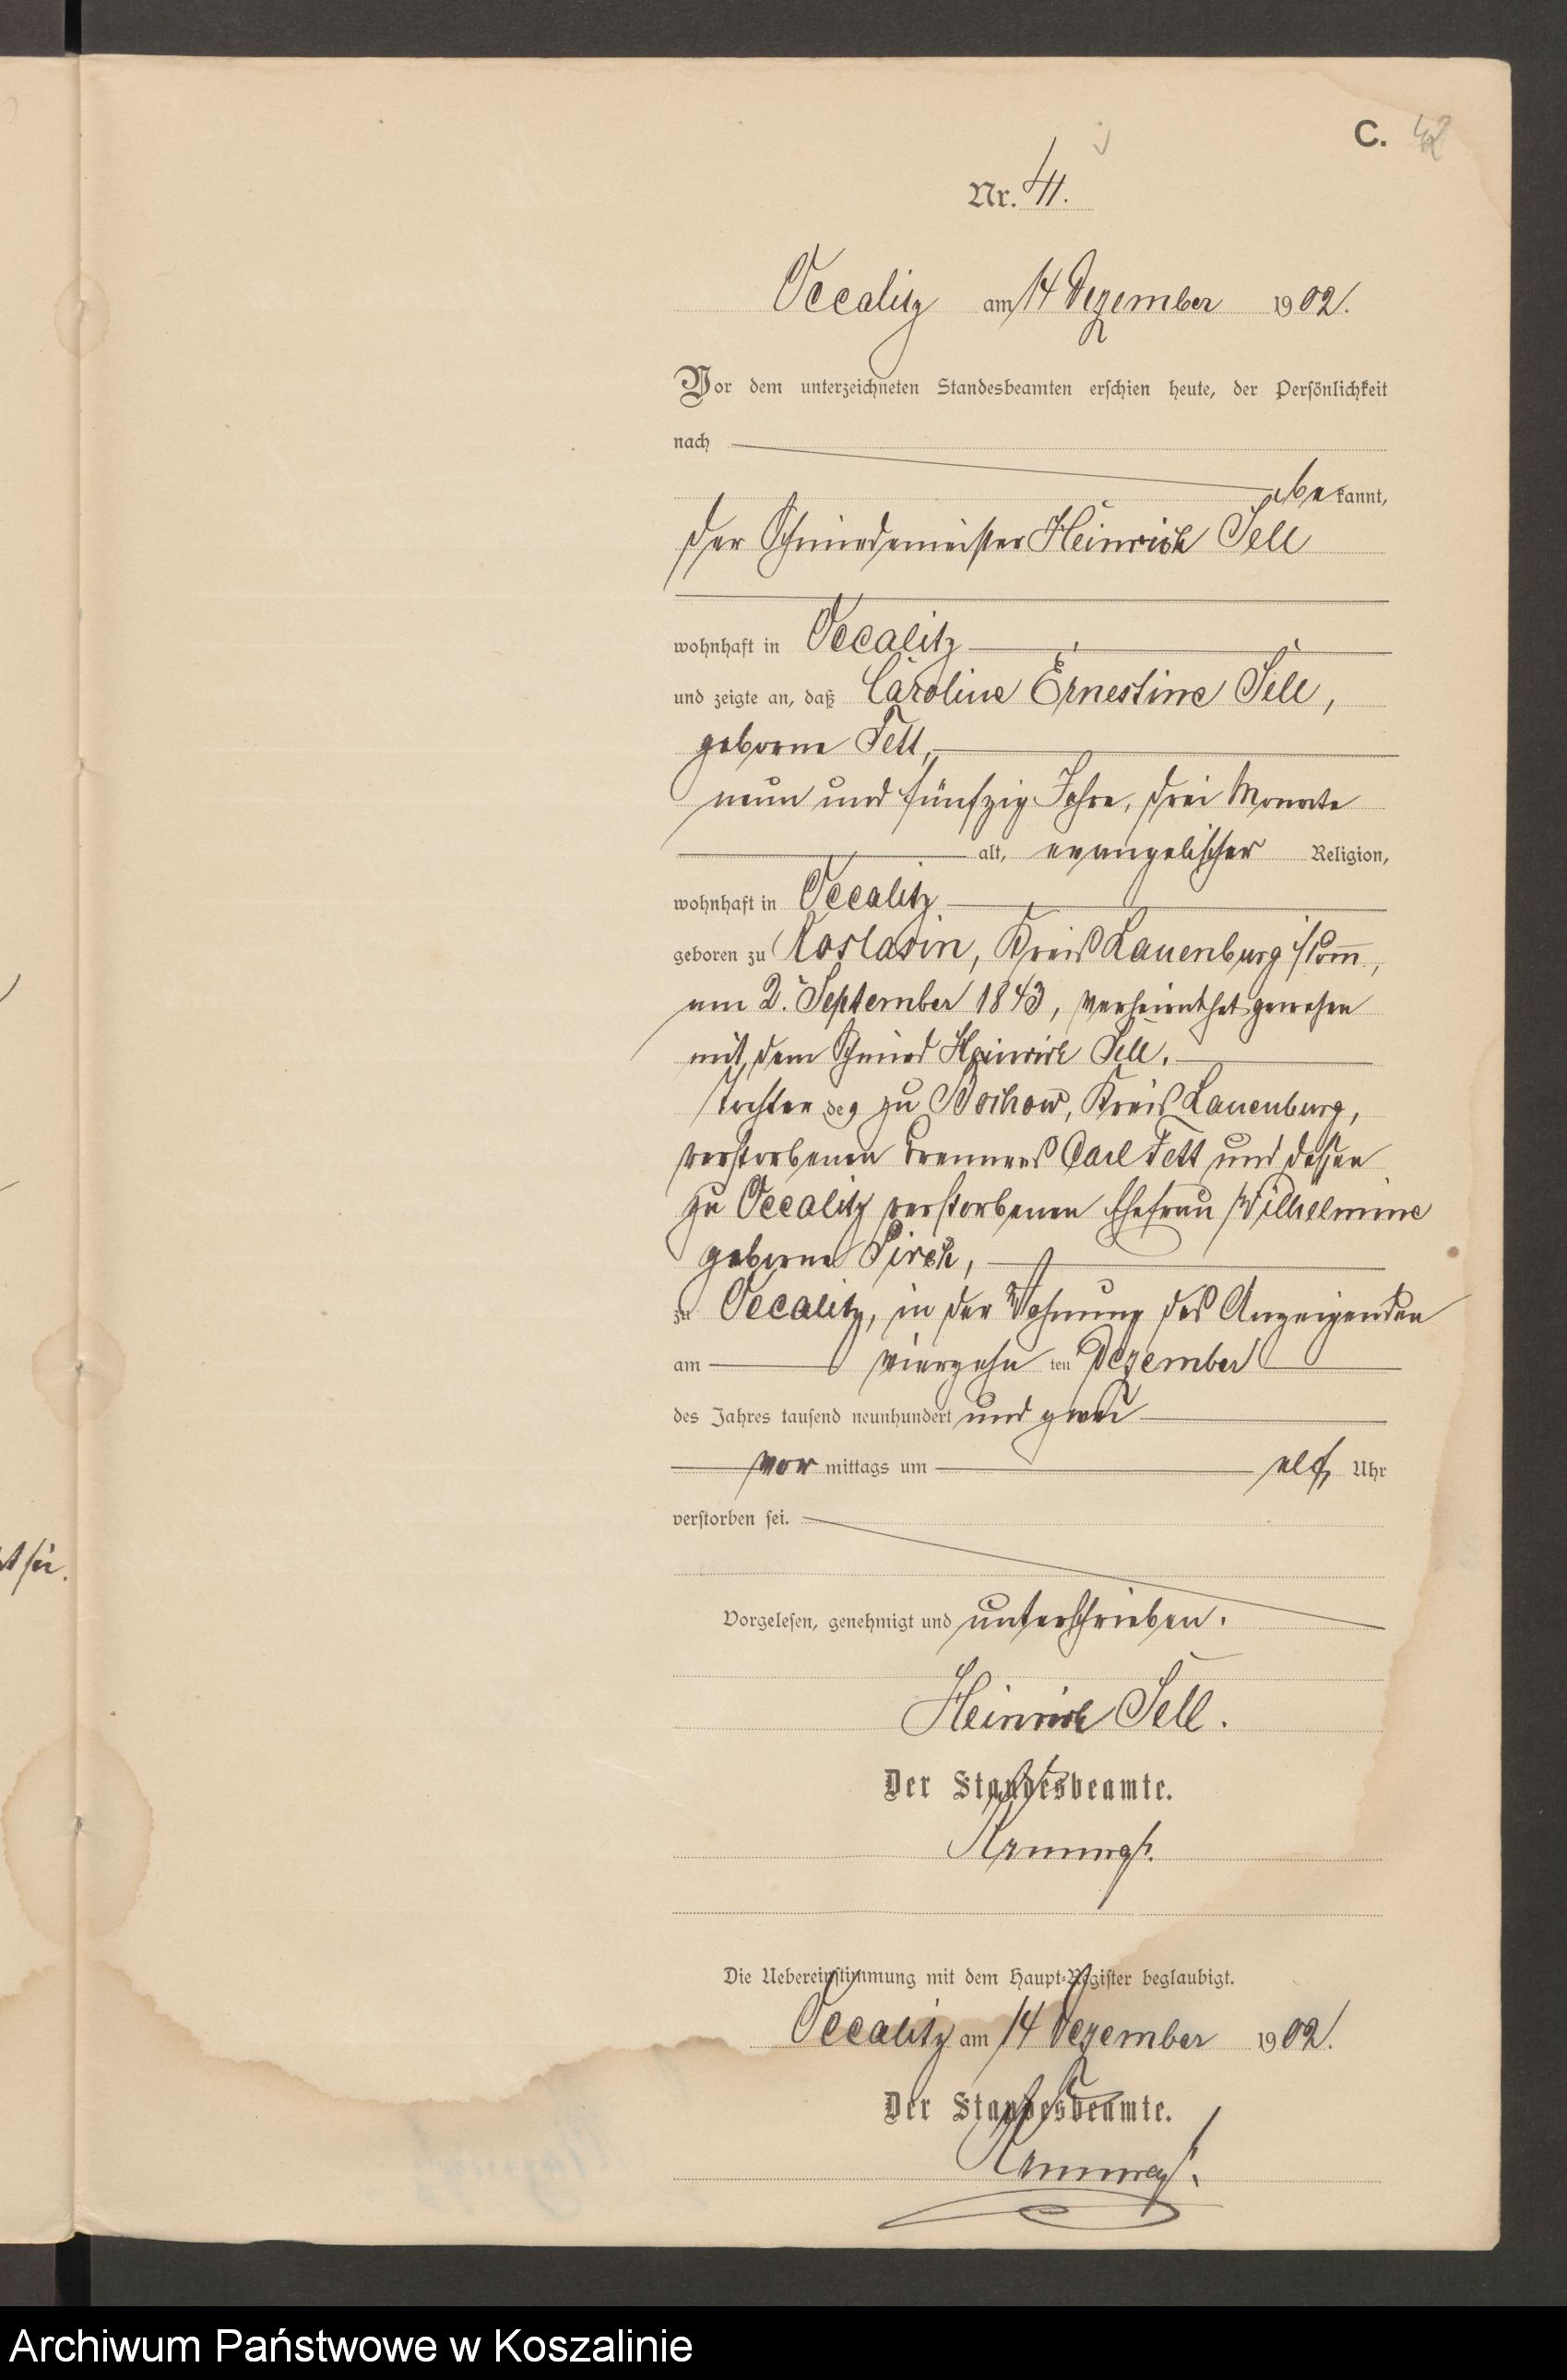 C. 42
Nr. 41.
Occalitz am 14 Dezember 1902.
Vor dem unterzeichneten Standesbeamten erschien heute, der Persönlichkeit
nach
bekannt,
der Schmiedemeister Heinrich Sell
wohnhaft in Occalitz
und zeigte an, daß Caroline Ernestine Sell,
geborne Fett,
neun und fünfzig Jahre, drei Monate
alt, evangelischer Religion,
wohnhaft in Occalitz
geboren zu Roslasin, Kreis Lauenburg i/Pomm,
am 2. September 1843, verheirathet gewesen
mit dem Schmied Heinrich Sell.
Tochter des zu Bochow, Kreis Lauenburg,
verstorbenen Brenners Carl Fett und dessen
zu Occalitz verstorbenen Ehefrau Wilhelmine
geborne Pirch,
zu Occalitz, in der Wohnung des Anzeigenden
am vierzehn ten Dezember
des Jahres tausend neunhundert und zwei
vor mittags um elf Uhr
verstorben sei.
Vorgelesen, genehmigt und unterschrieben.
Heinrich Sell.
Der Standesbeamte.
Die Uebereinstimmung mit dem Haupt-Register beglaubigt.
Occalitz am 14 Dezember 1902.
Der Standesbeamte.
Archiwum Państwowe w Koszalinie